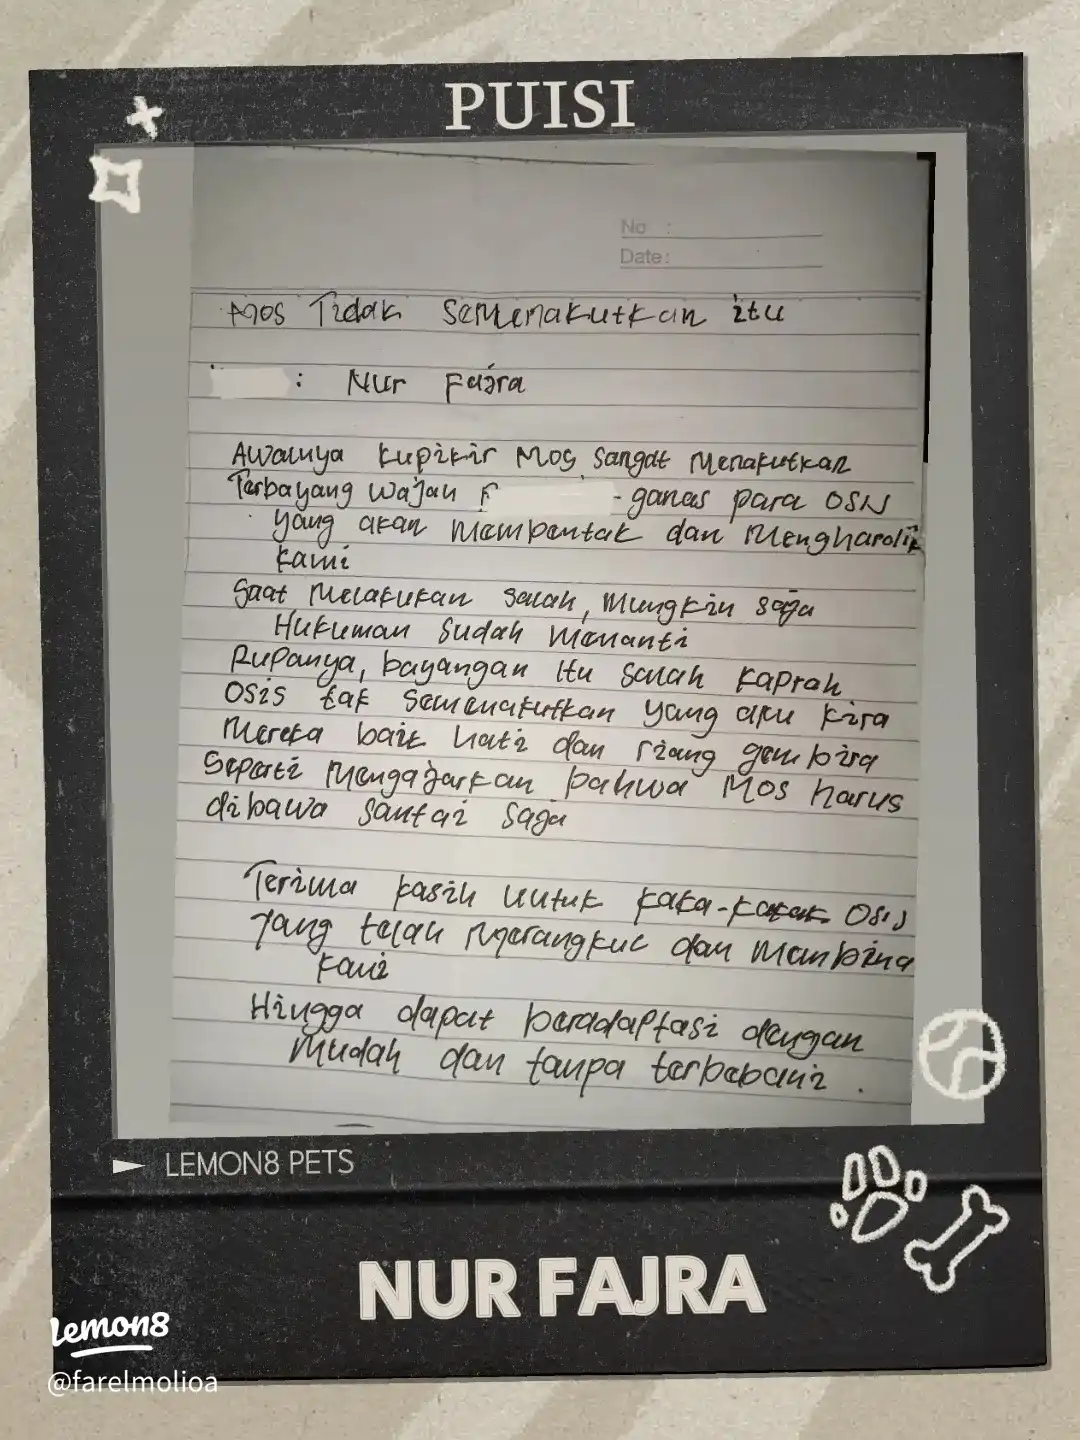 PUISI
No :
Date:
Mos Tidak Semenakutkan itu
: Nur Fajra
Awalnya kupikir Mos sangat Menakutkan
Terbayang wajah - ganas para OSN
yang akan Membentak dan Mengharolik
kami
Saat Melakukan salah, Mungkin saja
Hukuman Sudah Menanti
Rupanya, bayangan Itu salah kaprah
OSIS tak semenakutkan yang aku kira
Mereka baik hati dan riang gembira
Seperti Mengajarkan bahwa Mos harus
dibawa santai saja
Terima kasih untuk kaka-kakak OSIS
Yang telah Merangkul dan Membina
kami
Hingga dapat beradaptasi dengan
Mudah dan tanpa terbebani.
LEMON8 PETS
NUR FAJRA
Lemon8
@farelmolioa